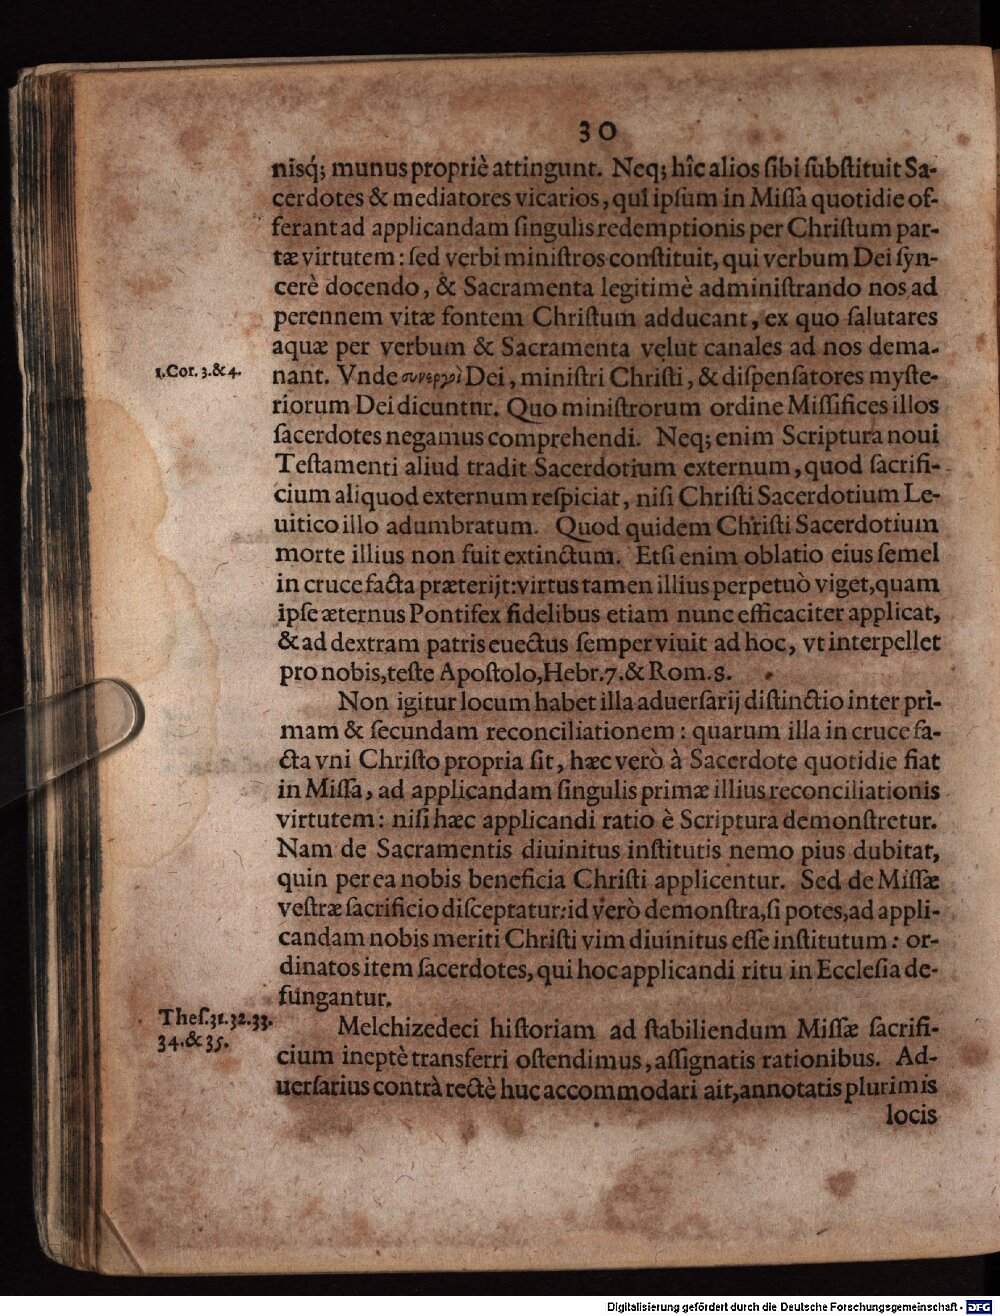 30
nisq́; munus propriè attingunt. Neq; hîc alios ſibi ſubſtituit Sa-
cerdotes & mediatores vicarios, qui ipſum in Miſſa quotidie of-
ferant ad applicandam ſingulis redemptionis per Chriſtum par-
tæ virtutem: ſed verbi miniſtros conſtituit, qui verbum Dei ſyn-
cerè docendo, & Sacramenta legitimè adminiſtrando nos ad
perennem vitæ fontem Chriſtum adducant, ex quo ſalutares
aquæ per verbum & Sacramenta velut canales ad nos dema-
1.Cor. 3.& 4.
nant. Vnde συνεργοὶ Dei, miniſtri Chriſti, & diſpenſatores myſte-
riorum Dei dicuntur. Quo miniſtrorum ordine Miſſifices illos
ſacerdotes negamus comprehendi. Neq; enim Scriptura noui
Teſtamenti aliud tradit Sacerdotium externum, quod ſacrifi-
cium aliquod externum reſpiciat, niſi Chriſti Sacerdotium Le-
uitico illo adumbratum. Quod quidem Chriſti Sacerdotium
morte illius non fuit extinctum. Etſi enim oblatio eius ſemel
in cruce facta præterijt: virtus tamen illius perpetuò viget, quam
ipſe æternus Pontifex fidelibus etiam nunc efficaciter applicat,
& ad dextram patris euectus ſemper viuit ad hoc, vt interpellet
pro nobis, teſte Apoſtolo, Hebr. 7. & Rom. 8.
Non igitur locum habet illa aduerſarij diſtinctio inter pri-
mam & ſecundam reconciliationem: quarum illa in cruce fa-
cta vni Chriſto propria ſit, hæc verò à Sacerdote quotidie fiat
in Miſſa, ad applicandam ſingulis primæ illius reconciliationis
virtutem: niſi hæc applicandi ratio è Scriptura demonſtretur.
Nam de Sacramentis diuinitus inſtitutis nemo pius dubitat,
quin per ea nobis beneficia Chriſti applicentur. Sed de Miſſæ
veſtræ ſacrificio diſceptatur: id verò demonſtra, ſi potes, ad appli-
candam nobis meriti Chriſti vim diuinitus eſſe inſtitutum: or-
dinatos item ſacerdotes, qui hoc applicandi ritu in Eccleſia de-
fungantur.
Theſ. 31. 32. 33.
34. & 35.
Melchizedeci hiſtoriam ad ſtabiliendum Miſſæ ſacrifi-
cium ineptè transferri oſtendimus, aſſignatis rationibus. Ad-
uerſarius contrà rectè huc accommodari ait, annotatis plurimis
locis
Digitalisierung gefördert durch die Deutsche Forschungsgemeinschaft - DFG